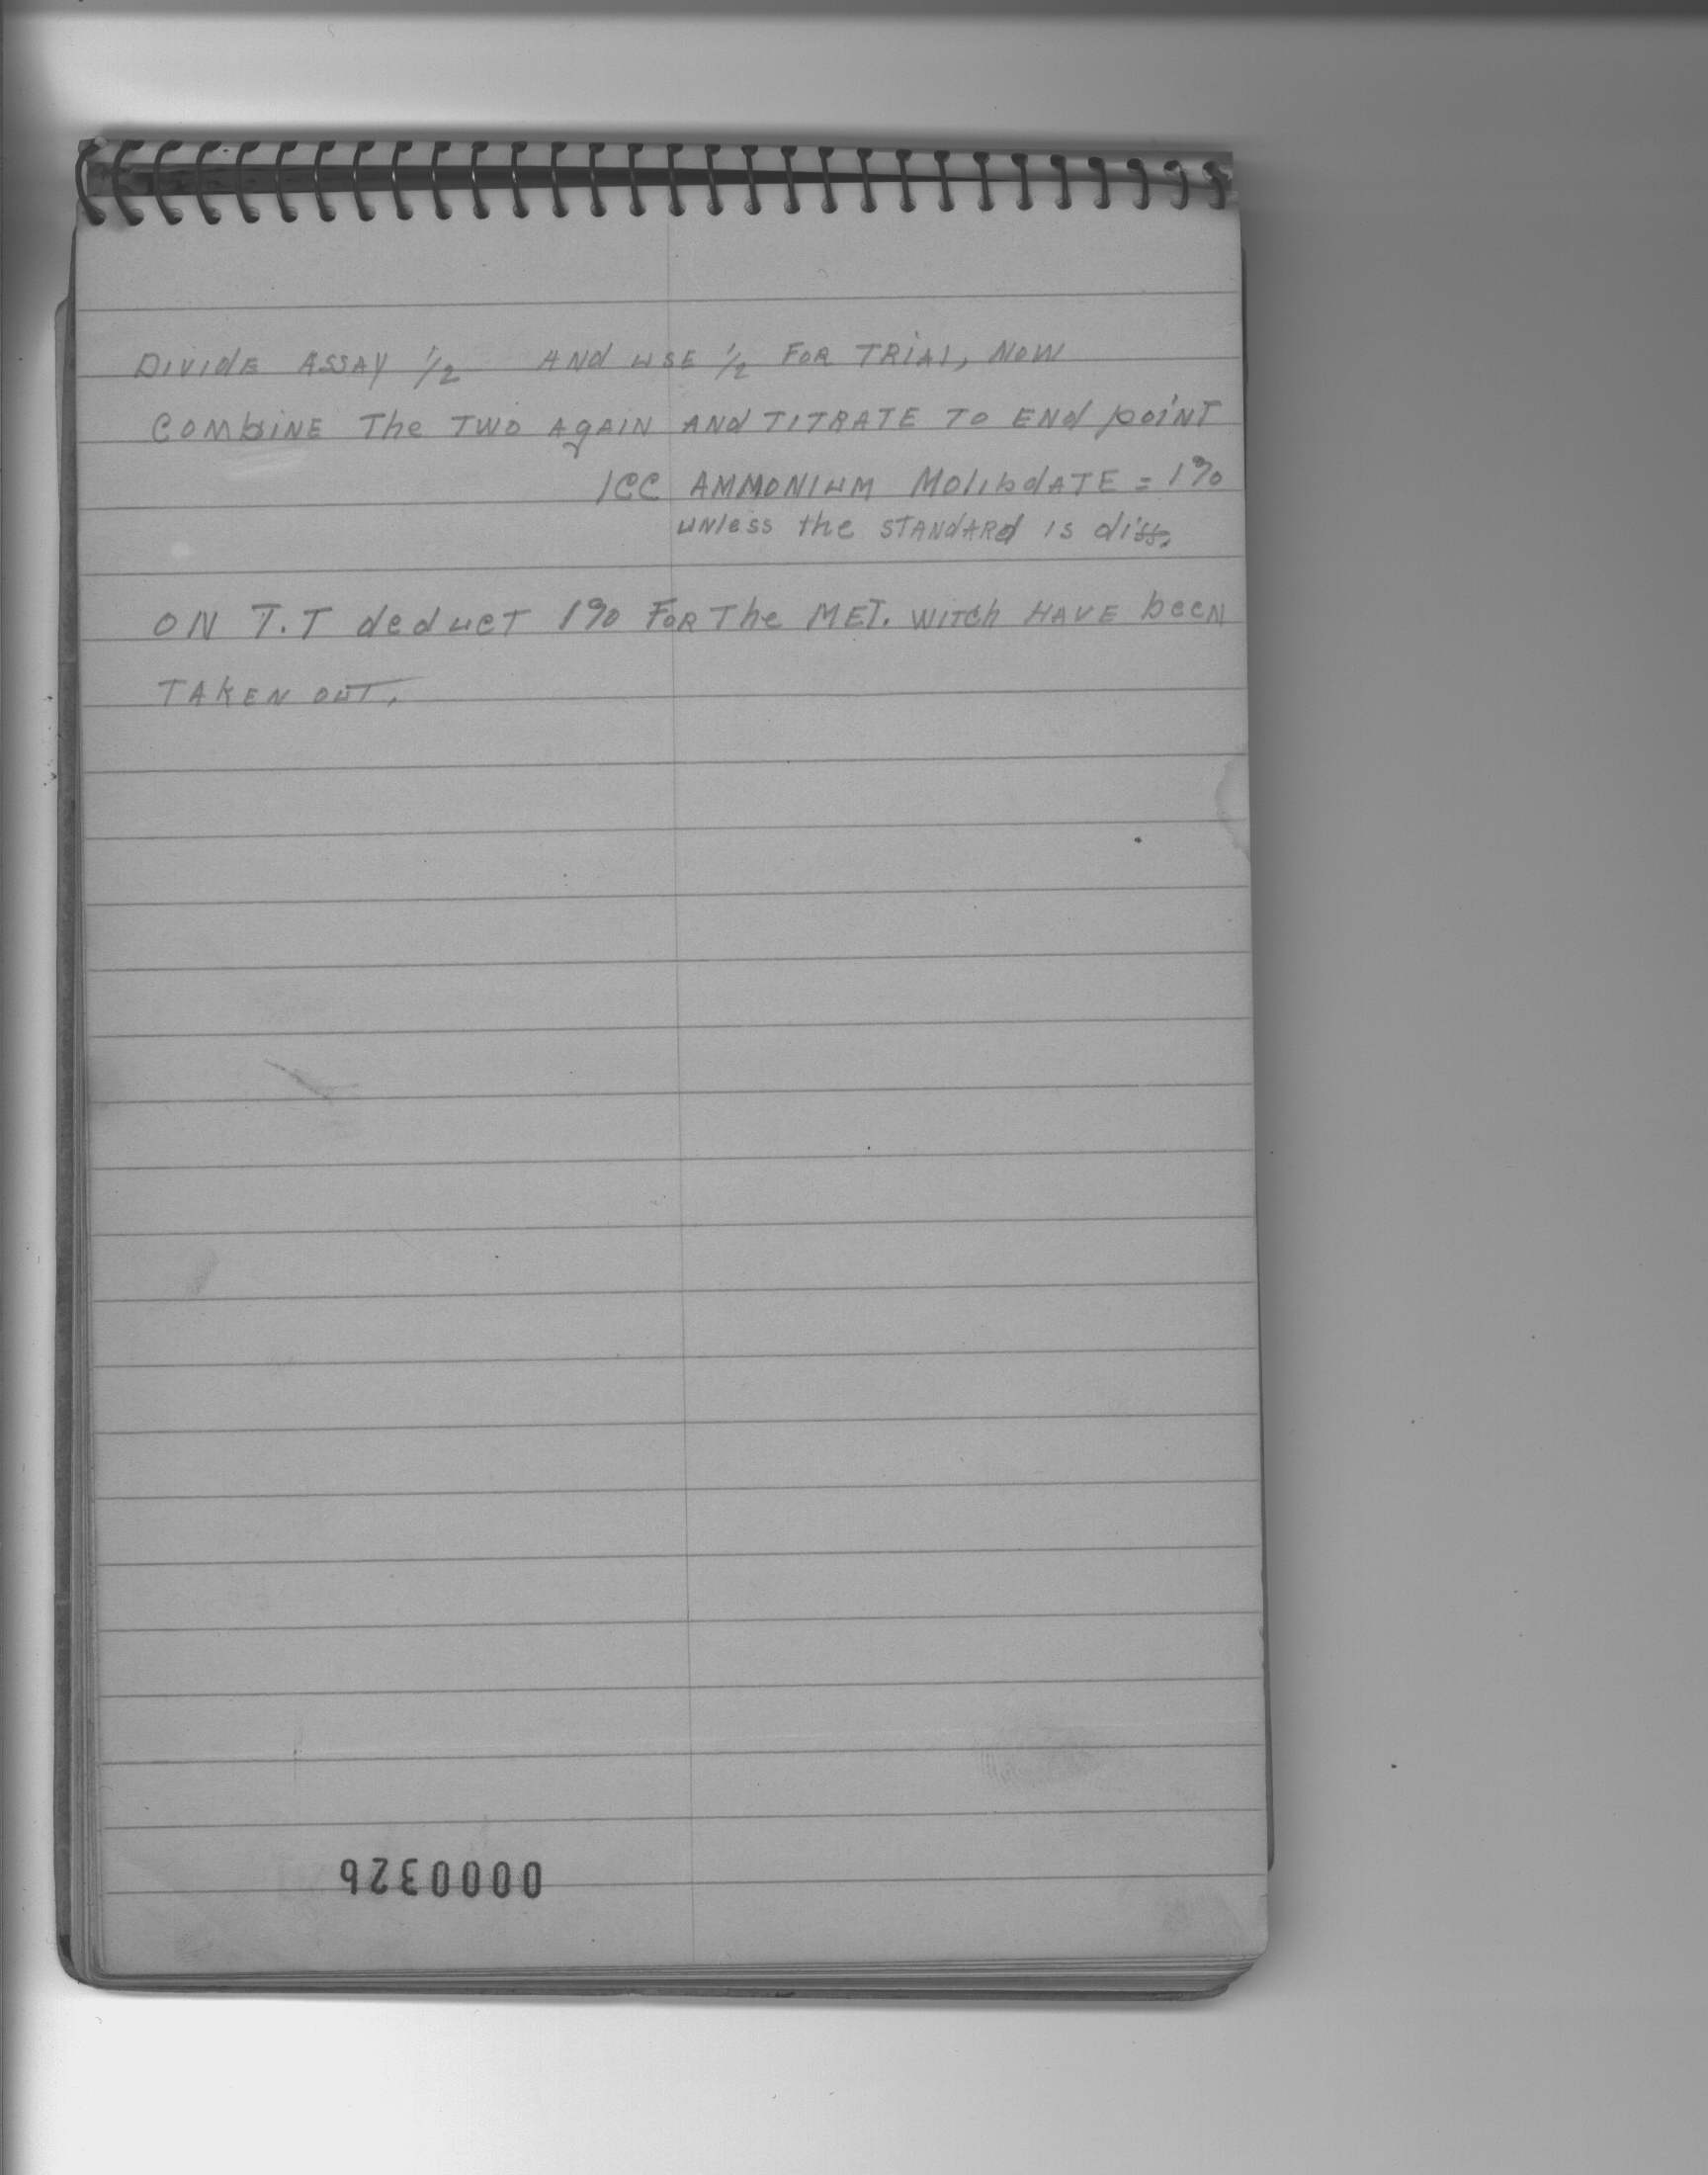 DIVIDE ASSAY 1/2 AND USE 1/2 FOR TRIAL, NOW
COMBINE The TWO AgAIN ANd TITRATE TO ENd poiNT
1CC AMMONIUM MolibdATE = 1%
uNless the STANdARd is diff.
ON T.T deduct 1% FOR The MET. WITCh HAVE beeN
TAKEN OUT.
0000326